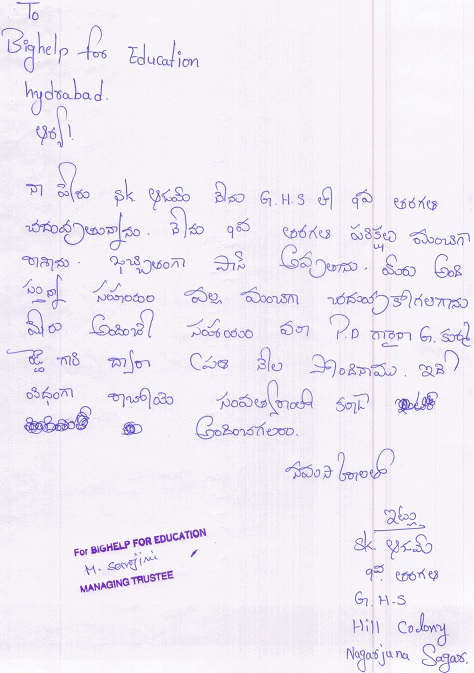 To
Bighelp for Education
hydrabad.
ఆర్యా!
నా పేరు SK. ఆదమ్ నేను G.H.S లో 9వ తరగతి
చదువుతున్నాను. నేను 9వ తరగతి పరిక్షలు మంచిగా
రాశాను. ఖచ్చితంగా పాస్ అవుతాను. మీరు అంది
స్తున్న సహాయం వల్ల మంచిగా చదువుకోగలిగాను
మీరు అందించే సహాయం మా P.D గారైన G.
రెడ్డి గారి ద్వారా ప్రతి నెల పొందినాము. ఇదే
విధంగా రాబోయె సంవత్సరానికి కూడా
అందించగలరు.
నమస్కారాలతో
ఇట్లు
SK. ఆదమ్
9వ. తరగతి
G.H.S
Hill Colony
Nagarjuna Sagar.
For BIGHELP FOR EDUCATION
M. Sarojini
MANAGING TRUSTEE